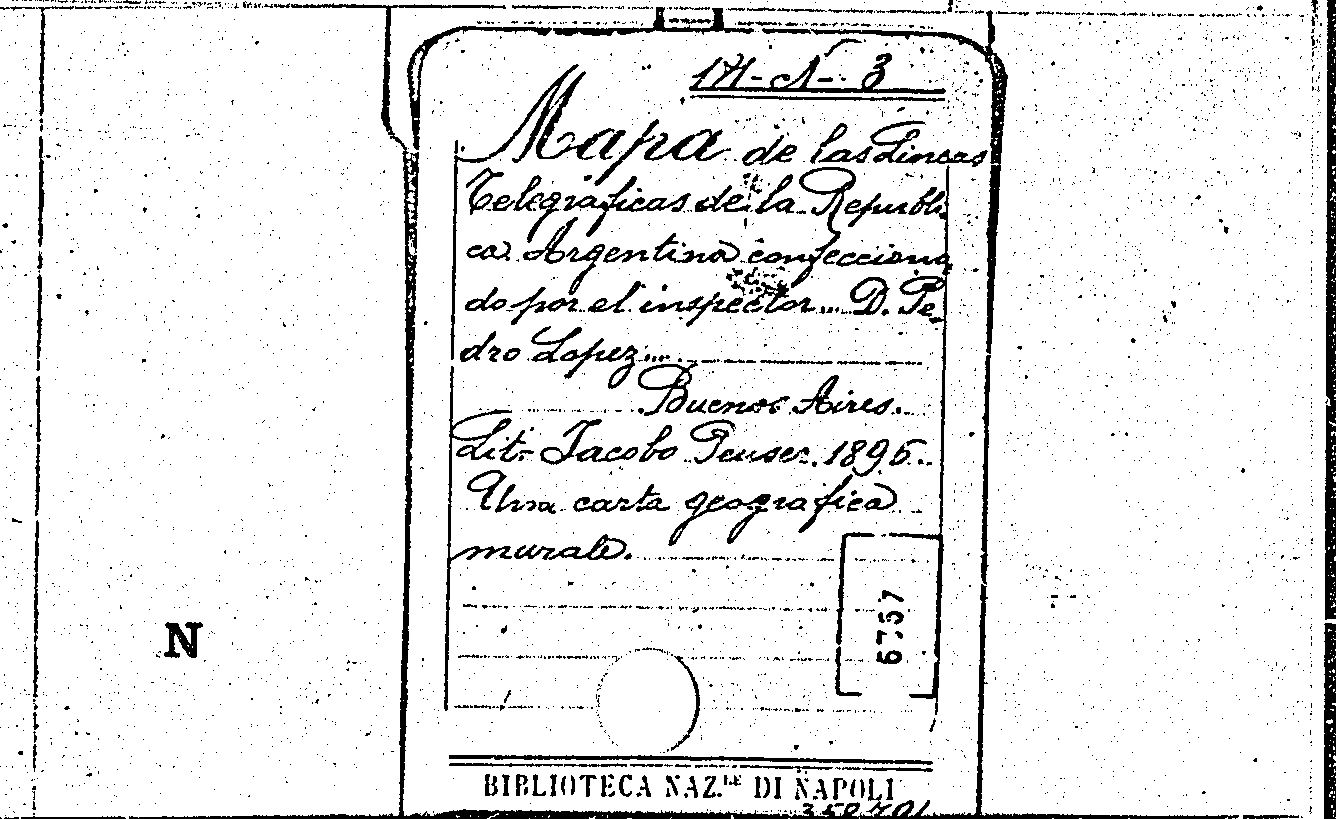 Mapa de las Lineas
Telegraficas de la Republi-
ca Argentina confecciona
do por el inspector... D. Pe-
dro Lopez....
Buenos Aires.
Lit- Jacobo Peuser. 1895.
Una carta geografica
murale.
6757
N
BIBLIOTECA NAZ.LE DI NAPOLI